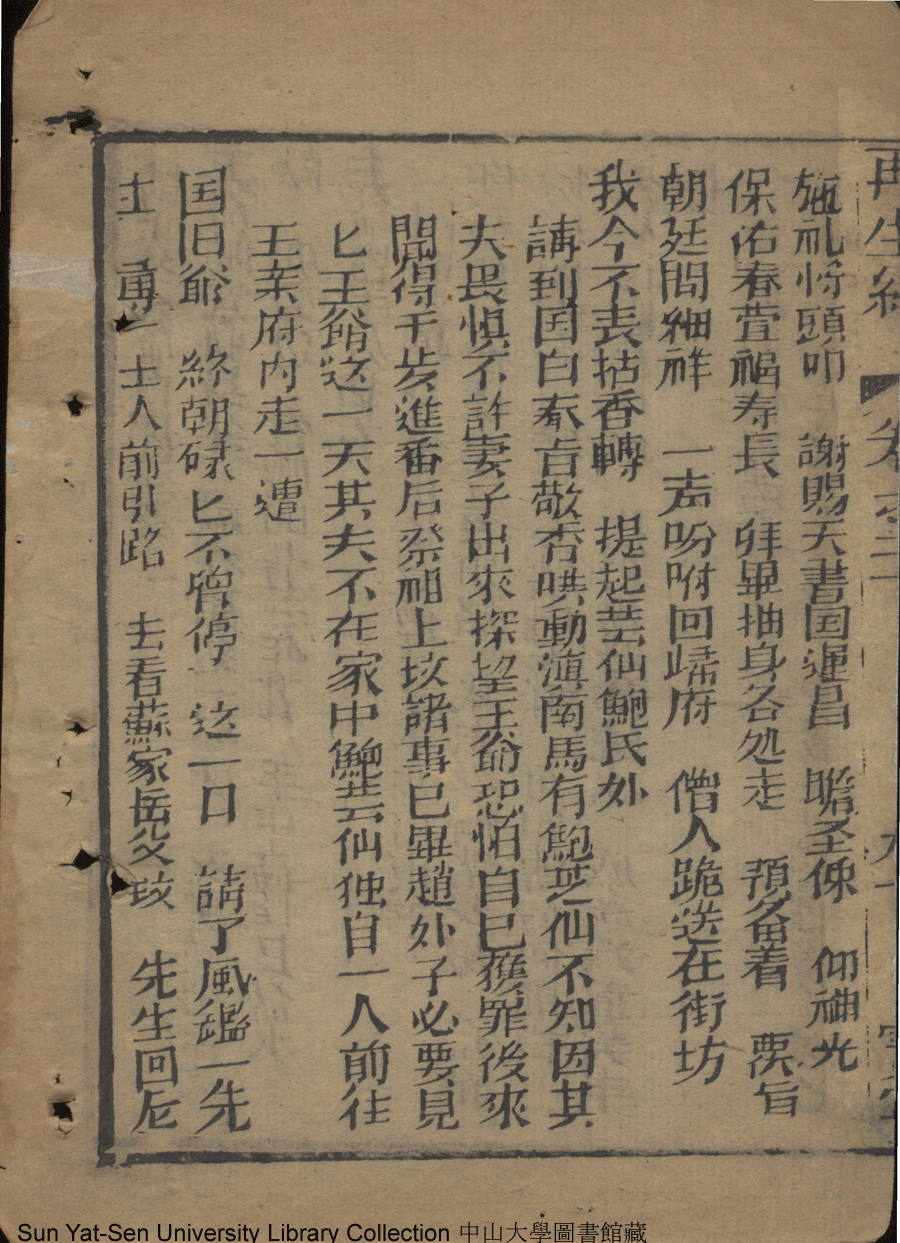 再生 卷之二
施礼將頭叩 謝賜天書国運昌 瞻圣像 仰神光
保佑春萱福寿長 拜畢抽身各処走 預备着 覆旨
朝廷問細祥 一声吩咐回歸府 僧人跪送在街坊
我今不表拈香轉 提起芸仙鮑氏外
講到因白奉旨敬香哄動滇南馬有鮑芸仙不知因其
夫畏慎不許妻子出來探望王爺恐怕自已獲罪後來
聞得干歩進番后祭祖上坟諸事已畢趙外子必要見
匕王爺这一天其夫不在家中鮑芸仙独自一人前往
王亲府内走一遭
国旧爺 終朝碌匕不曾停 这一日 請了風鑑一先
士 勇士人前引路 去看蘇家岳父坟 先生回
Sun Yat-Sen University Library Collection 中山大學圖書館藏